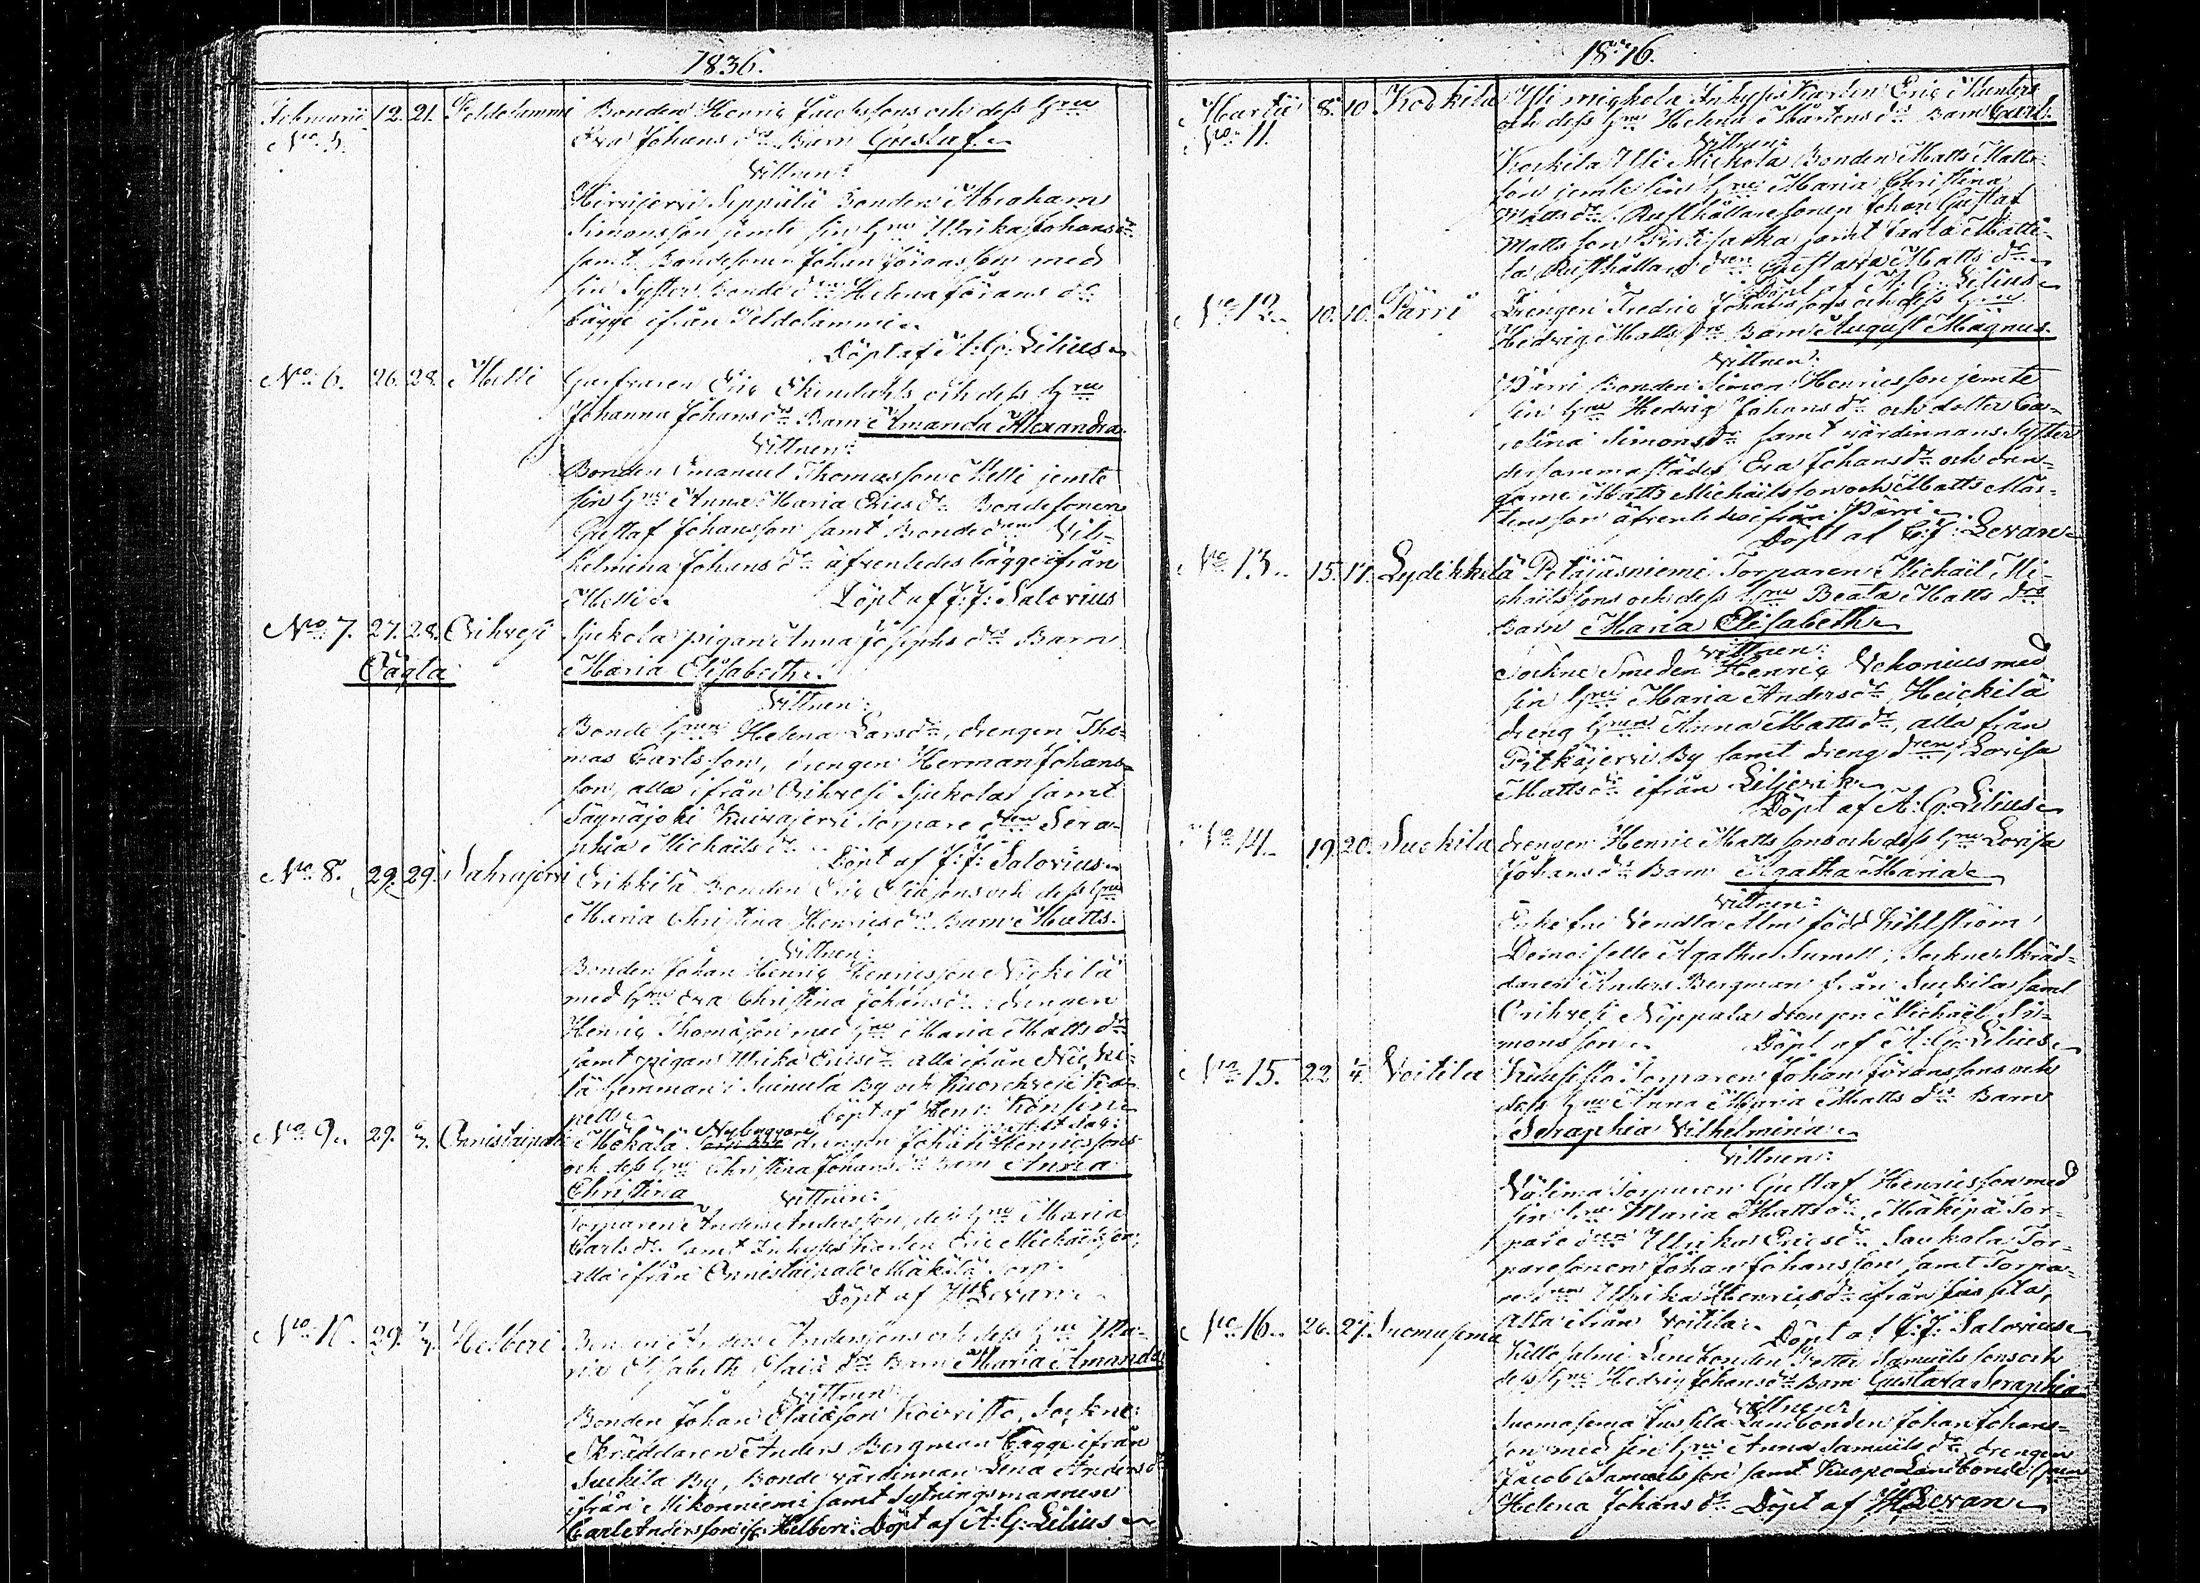 1836.
Februarii 12. 21. Peldolammi Bonden Henric Jacobssons och dess Hru
No 5. Eva Johans dr Barn Gustaf
Vittnen:
Hirvijervi Seppälä Bonden Abraham
Simonsson jemte sin Hru Ulrika Johans dr
samt Bondesonen Johan Göransson med
sin Syster Bonde dren Helena Görans dr
bägge ifrån Peldolammi
Döpt af A: G: Lilius
No 6. 26. 28. Metti Eric Ekendahls och dess Hru
Johanna Johans dr Barn Amanda Alexandra
Vittnen:
Bonden Emanuel Thomasson Metti jemte
sin Hru Anna Maria Erics dr Bondesonen
Gustaf Johansson samt Bonde dren Vil-
helmina Johans dr äfvenledes bägge ifrån
Metti Döpt af J: J: Salovius
No 7. 27. 28. Orihvesi Sjukola pigan Anna Josephs dr Barn
Oägta Maria Elisabeth
Vittnen:
Bonde Hrun Helena Lars dr, drengen Tho-
mas Carlsson, drengen Herman Johans-
son, alla ifrån Orihvesi Sjukola samt
Säynäjoki Kuivajervi torpare dren Sera-
phia Michaels dr Döpt af J: J: Salovius
No 8. 29. 29. Sahrajervi Erikkilä Bonden Eric Eliæsons och dess Hru
Maria Christina Henrics dr Barn Matts
Vittnen:
Bonden Johan Henric Henricsson Nickilä
med Hru Eva Christina Johans dr drengen
Henric Thomæson med Hru Maria Matts dr
samt pigan Ulrika Erics dr alla ifrån Nicki-
lä Hemman i Suinula By och Kuorehvesi Ka-
pell Döpt af Henr: Konsin
No 9. 29. Onnistaipale Mäkälä Nybyggare drengen Johan Henricssons
och dess Hru Christina Johans dr Barn Anna
Christina Vittnen:
Torparen Anders Andersson, dess Hru Maria
Carls dr samt Inhyses Karlen Eric Michaelsson,
alla ifrån Onnistaipale Mäkälä Torp.
Döpt af HLevan
No 10. 29. Helberi Bonden Anders Anderssons och dess Hru Ma-
ria Elisabeth Esaiæ dr Barn Maria Amanda
Vittnen:
Bonden Johan Esaiæson Koivisto, Sockne
Skräddaren Anders Bergman bägge ifrån
Suckila By, Bonde värdinnan Lena Anders dr
ifrån Mikonniemi samt Sytningsmannen
Carl Andersson if: Helberi: Döpt af A: G: Lilius
1836.
Martii 8. 10. Koskila Yli mickola Inhyses Karlen Eric Hunters
No 11. och dess Hru Helena Mårtens dr Barn Carl
Vittnen:
Koskila Yli Mickola Bonden Matts Matts-
son jemte sin Hru Maria Christina
Matts dr: Rusthållaresonen Johan Gustaf
Mattsson samt Matti-
la Rusthållare dren Gustava Matts dr
Döpt af A: G: Lilius
No 12. 10. 10. Pärri Drengen Fredric Johanssons och dess Hru
Hedvig Matts drs Barn August Magnus
Vittnen:
Pärri Bonden Simon Henricsson jemte
sin Hru Hedvig Johans dr och dotter Ca-
rolina Simons dr samt värdinnans Syster
dersammastädes Eva Johans dr och dren-
garne Matts Michaelsson och Matts Mår-
tensson äfvenledes ifrån Pärri
Döpt af C: J: Levan
No 13. 15. 17. Lydikkilä Petäjäsniemi Torparen Michaël Mi-
chaëlssons och dess Hru Beata Matts drs
Barn Maria Elisabeth
Vittnen:
Sockne Smeden Henric Vekonius med
sin Hru Maria Anders dr, Heickilä
dreng Hrun Anna Matts dr, alla från
Pitkäjervi By samt dreng dren Lovisa
Matts dr ifrån Liljerik
Döpt af A: G: Lilius
No 14. 19. 20. Suckila drengen Henric Mattssons och dess Hru Lovisa
Johans dr Barn Agatha Maria
Vittnen:
Enke fru Vendla Alm född Kihlström
Demoiselle Agatha Sumell, Sockne Skräd-
daren Anders Bergman från Suckila samt
Orihvesi Nippala drengen Michaël Si-
monsson Döpt af A: G: Lilius
No 15. 22 Voitila Torparen Johan Göranssons och
dess Hru Anna Maria Matts drs Barn
Seraphia Vilhelmina
Vittnen:
Välimä torparen Gustaf Henricsson med
sin Hru Maria Matts dr, Mäkipä Tor-
pare dren Ulrika Erics dr Saukola Tor-
pare sonen Johan Johansson samt Torpa-
re Ulrika Henrics dr ifrån
alla ifrån Voitila Döpt af J: J: Salovius
No 16. 26. 27. Suomasema Landbonden Petter Samuelssons och
dess Hru Hedvig Johans drs Barn Gustava Seraphia
Vittnen:
Suomasema Juskila Landbonden Johan Johans-
son med sin Hru Anna Samuels dr drengen
Jacob Samuelsson samt Kuopo Landbonde Hrun
Helena Johans dr Döpt af HLevan